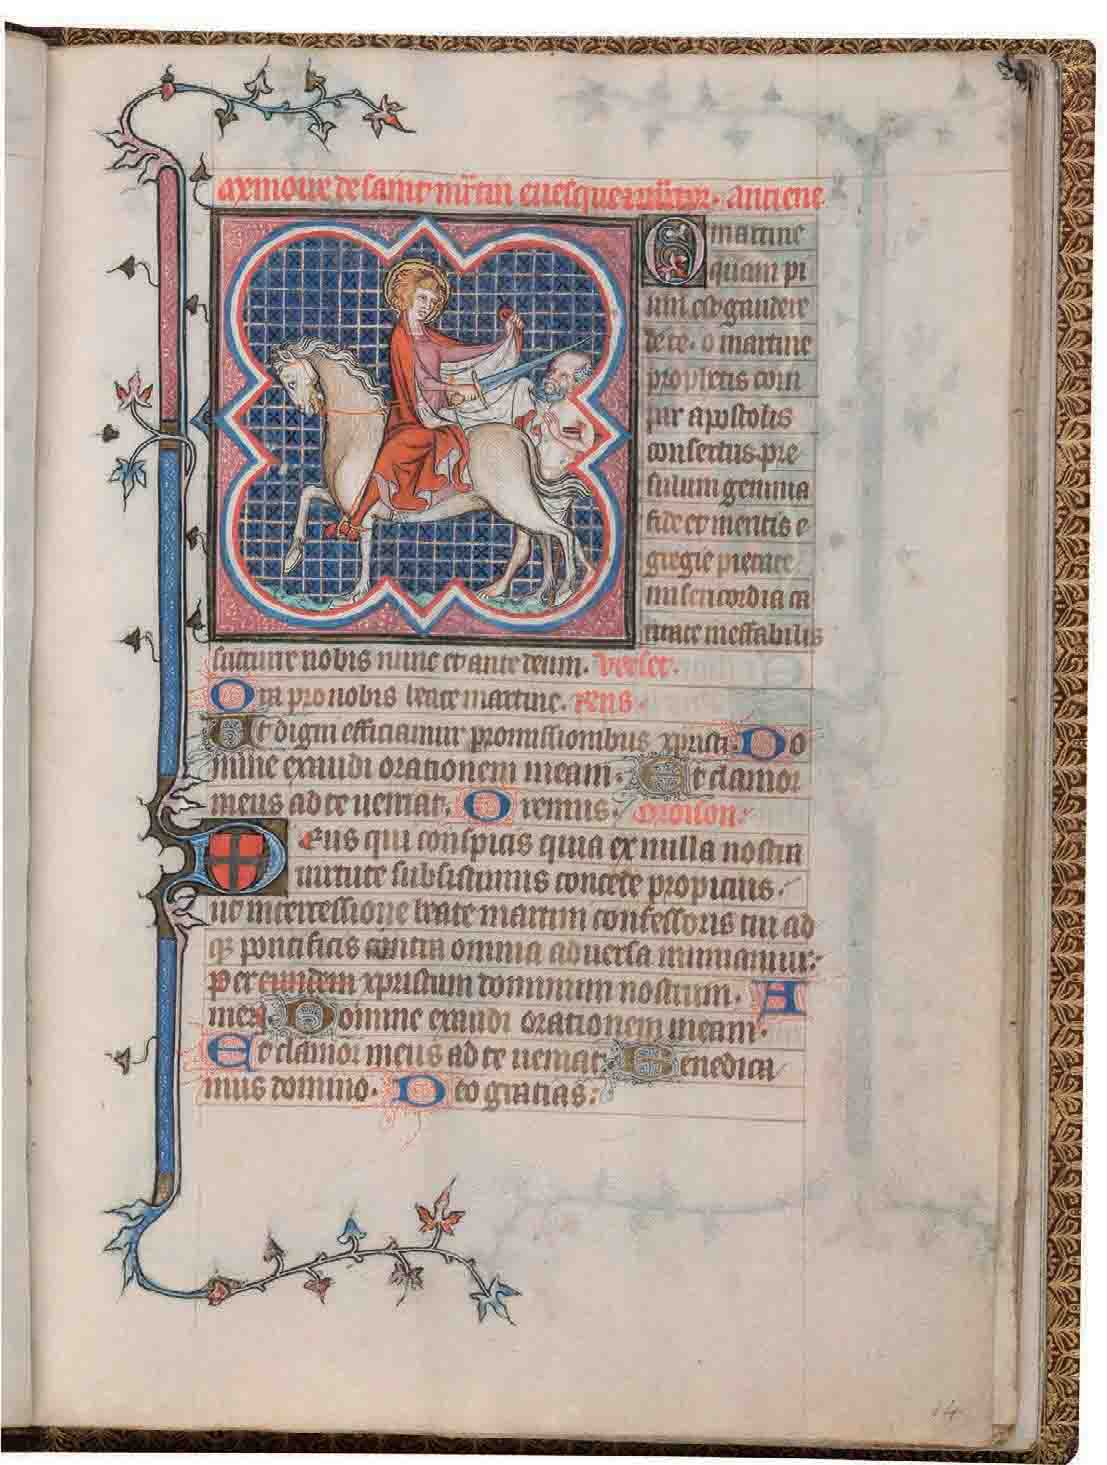 a memoire de saint martin euesque antiene
O martine
quam pi
um est gaudere
de te. o martine
prophetis com
par apostolis
consertus pre
sulum gemma
fide et meritis e
gregie pietate
misericordia ca
ritate ineffabilis
succurre nobis nunc et ante deum. verset.
Ora pro nobis beate martine. Rens.
Ut digni efficiamur promissionibus xpristi. Do
mine exaudi orationem meam. Et clamor
meus ad te ueniat. Oremus. Oroison.
Deus qui conspicis quia ex nulla nostra
uirtute subsistimus concede propicius.
ut intercessione beate martini confessoris tui ad
q3 pontificis contra omnia aduersa muniamur.
Per eundem xpristum dominum nostrum. A
men. Domine exaudi orationem meam.
Et clamor meus ad te ueniat. Benedica
mus domino. Deo gratias.
14